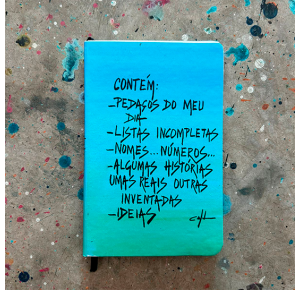 CONTÉM:
-PEDAÇOS DO MEU
DIA
-LISTAS INCOMPLETAS
-NOMES... NÚMEROS...
-ALGUMAS HISTÓRIAS
UMAS REAIS OUTRAS
INVENTADAS
-IDEIAS